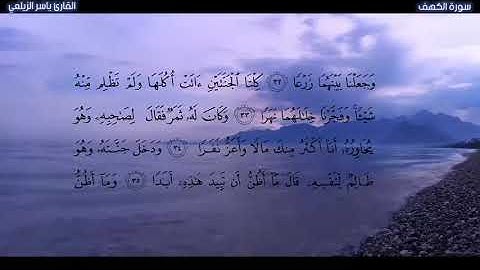 سورة الكهف
القارئ ياسر الزيلعي
وَجَعَلْنَا بَيْنَهُمَا زَرْعًا ٣٢ كِلْتَا ٱلْجَنَّتَيْنِ ءَاتَتْ أُكُلَهَا وَلَمْ تَظْلِم مِّنْهُ
شَيْـًٔا وَفَجَّرْنَا خِلَٰلَهُمَا نَهَرًا ٣٣ وَكَانَ لَهُۥ ثَمَرٌ فَقَالَ لِصَٰحِبِهِۦ وَهُوَ
يُحَاوِرُهُۥٓ أَنَا۠ أَكْثَرُ مِنكَ مَالًا وَأَعَزُّ نَفَرًا ٣٤ وَدَخَلَ جَنَّتَهُۥ وَهُوَ
ظَالِمٌ لِّنَفْسِهِۦ قَالَ مَآ أَظُنُّ أَن تَبِيدَ هَٰذِهِۦٓ أَبَدًا ٣٥ وَمَآ أَظُنُّ